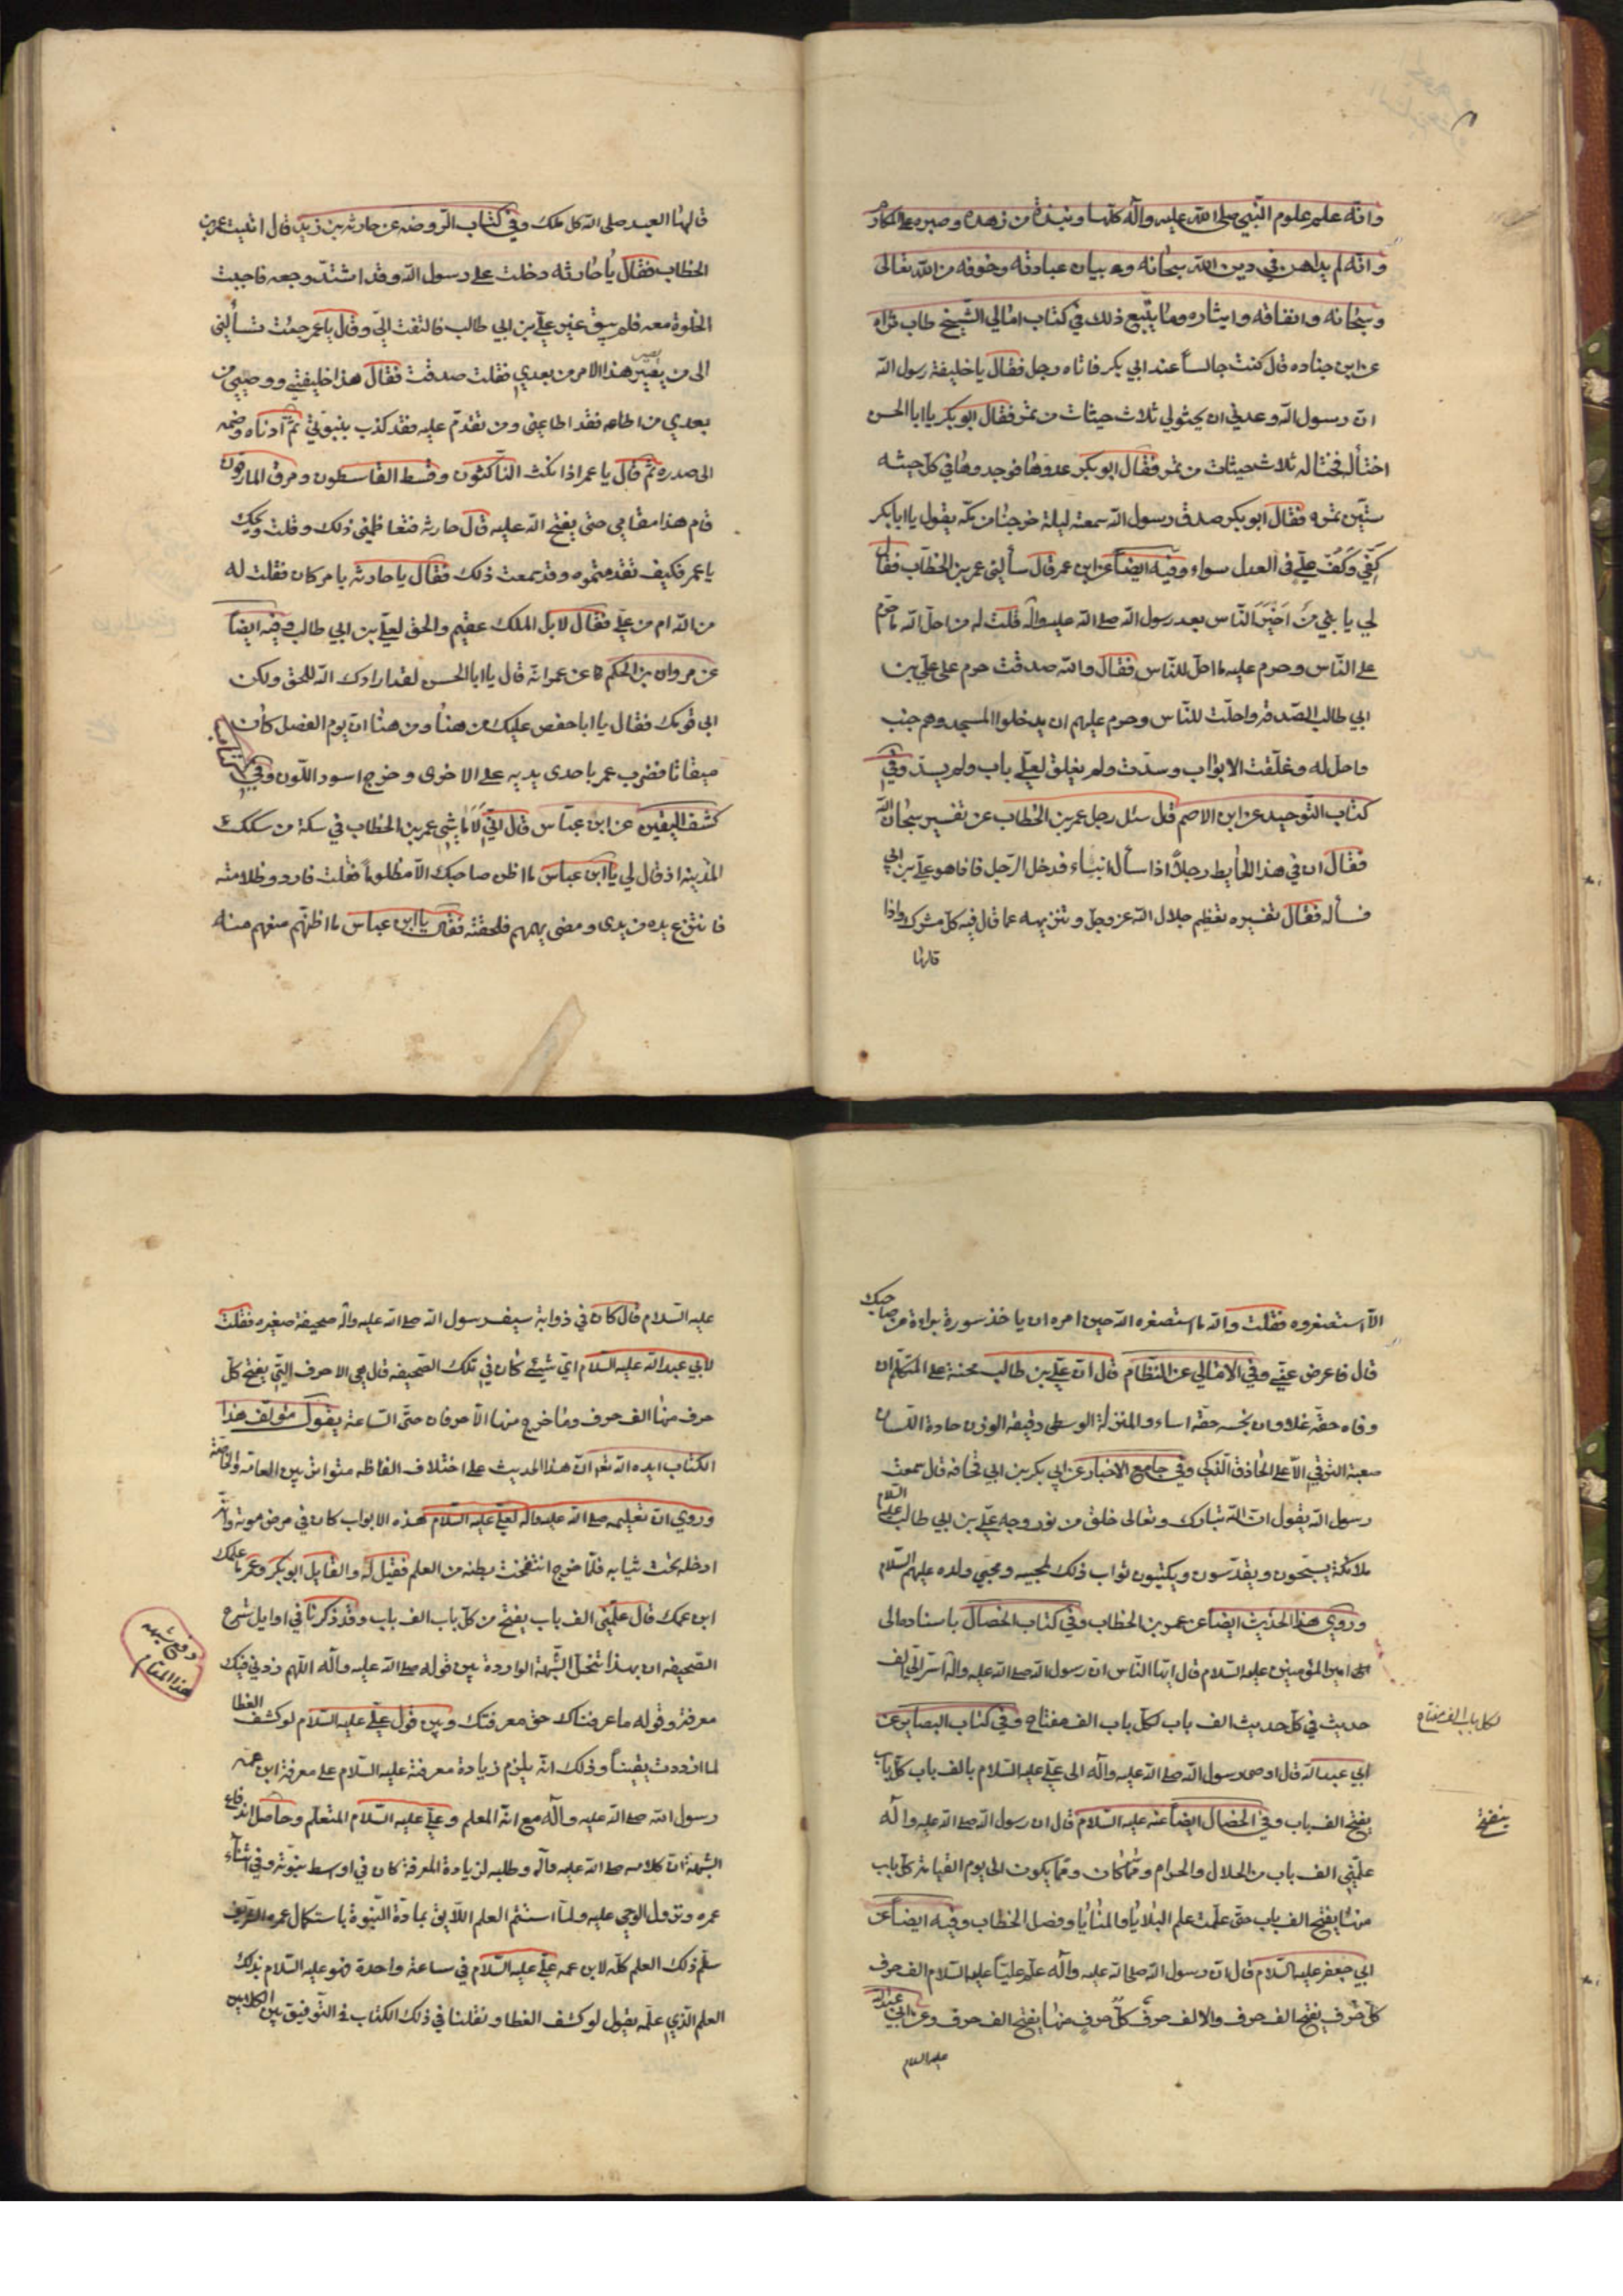 وانّه علم علوم النّبي صلى الله عليه وآله كلّها ونبذة من زهده وصبره على المكاره
وانّه لم يداهن في دين الله سبحانه وه بيان عبادته وخوفه من الله تعالى
وسخائه وانفاقه وايثاره وما يتبع ذلك في كتاب امالي الشيخ طاب ثراه
عن ابن جناده قال كنت جالساً عند ابي بكر فاتاه رجل فقال يا خليفة رسول الله
ان رسول الله وعدني ان يحثو لي ثلاث حثيات من تمر فقال ابو بكر يا ابا الحسن
احثُ له فحثا له ثلاث حثيات من تمر فقال ابو بكر عدوها فوجدوها في كل حثيه
ستين تمره فقال ابو بكر صدق رسول الله سمعته ليلة خرجنا من مكة يقول يا ابا بكر
كفّي وكفّ علي في العدل سواء وفيه ايضاً عن ابن عمر قال سألني عمر بن الخطاب فقال
لي يا بني مَن اَخيَر النّاس بعد رسول الله صلى الله عليه وآله قلت له من احل الله ما حرم
على النّاس وحرم عليه ما احل للنّاس فقال والله صدقت حرم على علي بن
ابي طالب الصّدقة واحلّت للنّاس وحرم عليهم ان يدخلوا المسجد وهم جنب
واحل له وغلّقت الابواب وسدّت ولم يغلق لعلي باب ولم يسدّ وفي
كتاب التوحيد عن ابن الاصم قال سئل رجل عمر بن الخطاب عن تفسير سبحان الله
فقال ان في هذا الحايط رجلاً اذا سأل انباء فدخل الرّجل فاذا هو علي بن ابي
فسأله فقال تفسيره تعظيم جلال الله عز وجل وتنزيهه عما قال فيه كل مشرك واذا
قالها
قالها العبد صلى الله كل ملك وفي كتاب الرّوضه عن حارثه بن زيد قال اتيت عمر بن
الخطاب فقال يا حارثه دخلت على رسول الله وقد اشتدّ وجعه فاحببت
الخلوة معه فلم يبق غير علي بن ابي طالب فالتفت اليّ وقال يا عمر جئت تسألني
الى من يصير هذا الامر من بعدي فقلت صدقت فقال هذا خليفتي ووصيي من
بعدي من اطاعه فقد اطاعني ومن تقدّم عليه فقد كذب بنبوتي ثمّ ادناه وضمه
الى صدره ثمّ قال يا عمر اذا نكث النّاكثون وقسط القاسطون ومرق المارقون
قام هذا مقامي حتى يفتح الله عليه قال حارثه فتعاظمني ذلك وقلت ويحك
يا عمر فكيف تقدمتموه وقد سمعت ذلك فقال يا حارثه بامر كان فقلت له
من الله ام من علي فقال لا بل الملك عقيم والحق لعلي بن ابي طالب وفيه ايضاً
عن مروان بن الحكم عن عمر انه قال يا ابا الحسن لقد ارادك الله للحق ولكن
ابى قومك فقال يا ابا حفص عليك من هنا ومن هنا ان يوم الفصل كان
ميقاتا فضرب عمر باحدى يديه على الاخرى وخرج اسود اللّون وفي
كشف اليقين عن ابن عبّاس قال انّي لاماشي عمر بن الخطاب في سكة من سكك
المدينه اذ قال لي يا ابن عباس ما اظن صاحبك الا مظلوماً فقلت فاردد ظلامته
فانتزع يده من يدي ومضى يهمهم فلحقته فقال يا ابن عباس ما اظنهم منعهم منه
الاّ استصغروه فقلت والله ما استصغره الله حين امره ان ياخذ سورة براءة من صاحبك
قال فاعرض عنّي وفي الامالي عن النظام قال ان علي بن طالب محنة على المتكلم ان
وفاه حقه غلا وان بخسه حقه اساء والمنزلة الوسطى دقيقه الوزن حادة اللسان
صعبة الترقي الاّ على الحاذق الذكي وفي جامع الاخبار عن ابي بكر بن ابي قحافه قال سمعت
رسول الله يقول ان الله تبارك وتعالى خلق من نور وجه علي بن ابي طالب عليه السلام
ملائكة يسبّحون ويقدّسون ويكتبون ثواب ذلك لمحبيه ومحبّي ولده عليهم السلام
وروي هذا الحديث ايضاً عن عمر بن الخطاب وفي كتاب الخصال باسناده الى
امير المؤمنين عليه السلام قال ايها الناس ان رسول الله صلى الله عليه وآله اسر الي الف
حديث في كل حديث الف باب لكل باب الف مفتاح وفي كتاب البصاير عن
لكل باب الف مفتاح
ابي عبد الله قال اوصى رسول الله صلى الله عليه وآله الى علي عليه السلام بالف باب كل باب
يفتح الف باب وفي الخصال ايضاً عنه عليه السلام قال ان رسول الله صلى الله عليه وآله
ينفتح
علّمني الف باب من الحلال والحرام وممّا كان وممّا يكون الى يوم القيامة كل باب
منها يفتح الف باب حتى علمت علم البلايا والمنايا وفصل الخطاب وفيه ايضاً عن
ابي جعفر عليه السلام قال ان رسول الله صلى الله عليه وآله علم عليّا عليه السلام الف حرف
كل حرف يفتح الف حرف والالف حرف كلّ حرف منها يفتح الف حرف وعن ابي عبد الله
عليه السلام
عليه السّلام قال كان في ذوابة سيف رسول الله صلى الله عليه وآله صحيفة صغيره فقلت
لابي عبد الله عليه السّلام اي شيئ كان في تلك الصّحيفه قال هي الاحرف التي يفتح كل
حرف منها الف حرف وما خرج منها الاّ حرفان حتّى السّاعة يقول مؤلف هذا
الكتاب ايده الله تعالى انّ هذا الحديث على اختلاف الفاظه متواتر بين العامة والخاصة
وروي ان تعليمه صلى الله عليه وآله لعلي عليه السّلام هذه الابواب كان في مرض موته وانه
ادخله تحت ثيابه فلمّا خرج انتفخت بطنه من العلم فقيل له والقايل ابو بكر وعمر ما علمك
ابن عمك قال علّمني الف باب يفتح من كلّ باب الف باب وقد ذكرنا في اوايل شرح
الصّحيفه ان بهذا تنحل الشّبهة الواردة بين قوله صلى الله عليه وآله اللهم زدني فيك
دفع شبهه هذا المقام
معرفة وقوله ما عرفناك حق معرفتك وبين قول علي عليه السّلام لو كشف الغطا
لما ازددت يقيناً وذلك انّه يلزم زيادة معرفة عليه السلام على معرفة ابن عمه
رسول الله صلى الله عليه وآله مع انّه المعلم وعلي عليه السّلام المتعلم وحاصل اندفاع
الشبهة ان كلامه صلى الله عليه وآله وطلبه لزيادة المعرفة كان في اوسط نبوّته وفي اثناء
عمره ونزول الوحي عليه ولمّا استتم العلم اللايق بمادة النّبوة باستكمال عمره الشريف
سلّم ذلك العلم كله لابن عمه علي عليه السّلام في ساعة واحدة فهو عليه السّلام بذلك
العلم الذي علّمه يقول لو كشف الغطا ونقلنا في ذلك الكتاب في التّوفيق بين الكلامين